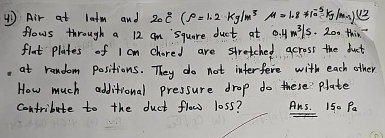 4) Air at 1atm and 20 c° (ρ=1.2 Kg/m³ M=1.8 *10⁻⁵ Kg/m.s)
flows through a 12 cm square duct at 0.4 m³/s. 200 thin
flat plates of 1 cm chored are stretched across the duct
at random positions. They do not interfere with each other
How much additional pressure drop do these plate
Contribute to the duct flow loss? Ans. 150 Pa